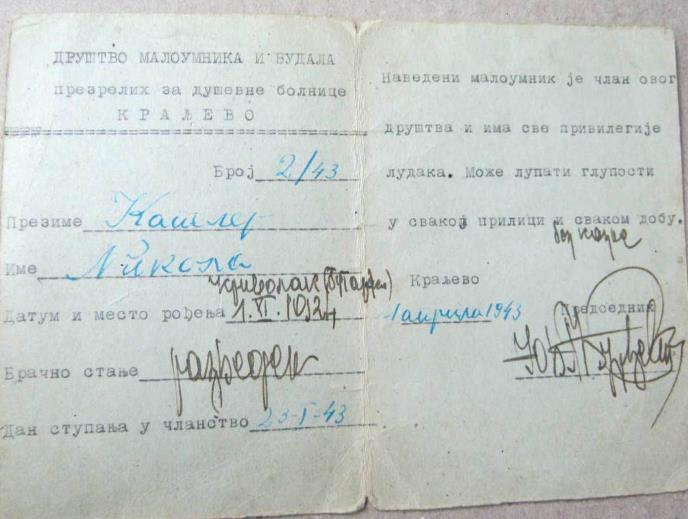 ДРУШТВО МАЛОУМНИКА И БУДАЛА
презрелих за душевне болнице
КРАЉЕВО
Број 2/43
Презиме Кашлер
Име Никола
Датум и место рођења 1. VI. 1912
Брачно стање разведен
Дан ступања у чланство 23-I-43
Наведени малоумник је члан овог
друштва и има све привилегије
лудака. Може лупати глупости
у свакој прилици и сваком добу.
без казне
Краљево
1 априла 1943 Председник